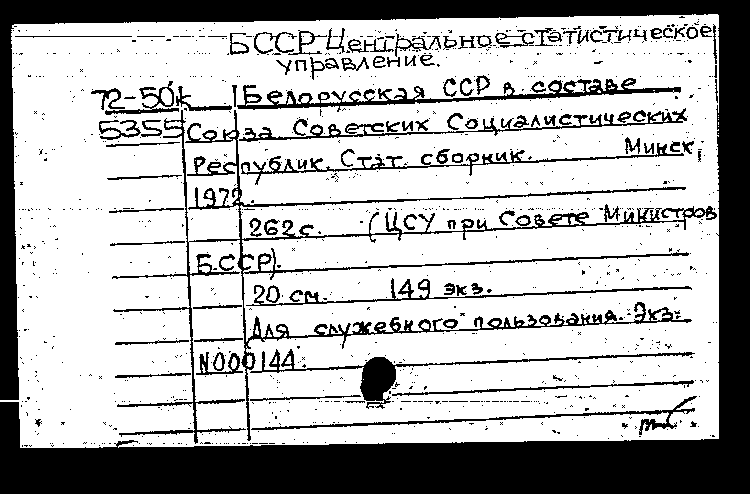 БССР. Центральное статистическое
управление.
72-50к Белорусская ССР в составе
5355 Союза Советских Социалистических
Республик. Стат. сборник. Минск,
1972.
262с. (ЦСУ при Совете Министров
БССР).
20 см. 149 экз.
Для служебного пользования. Экз.
N000144.